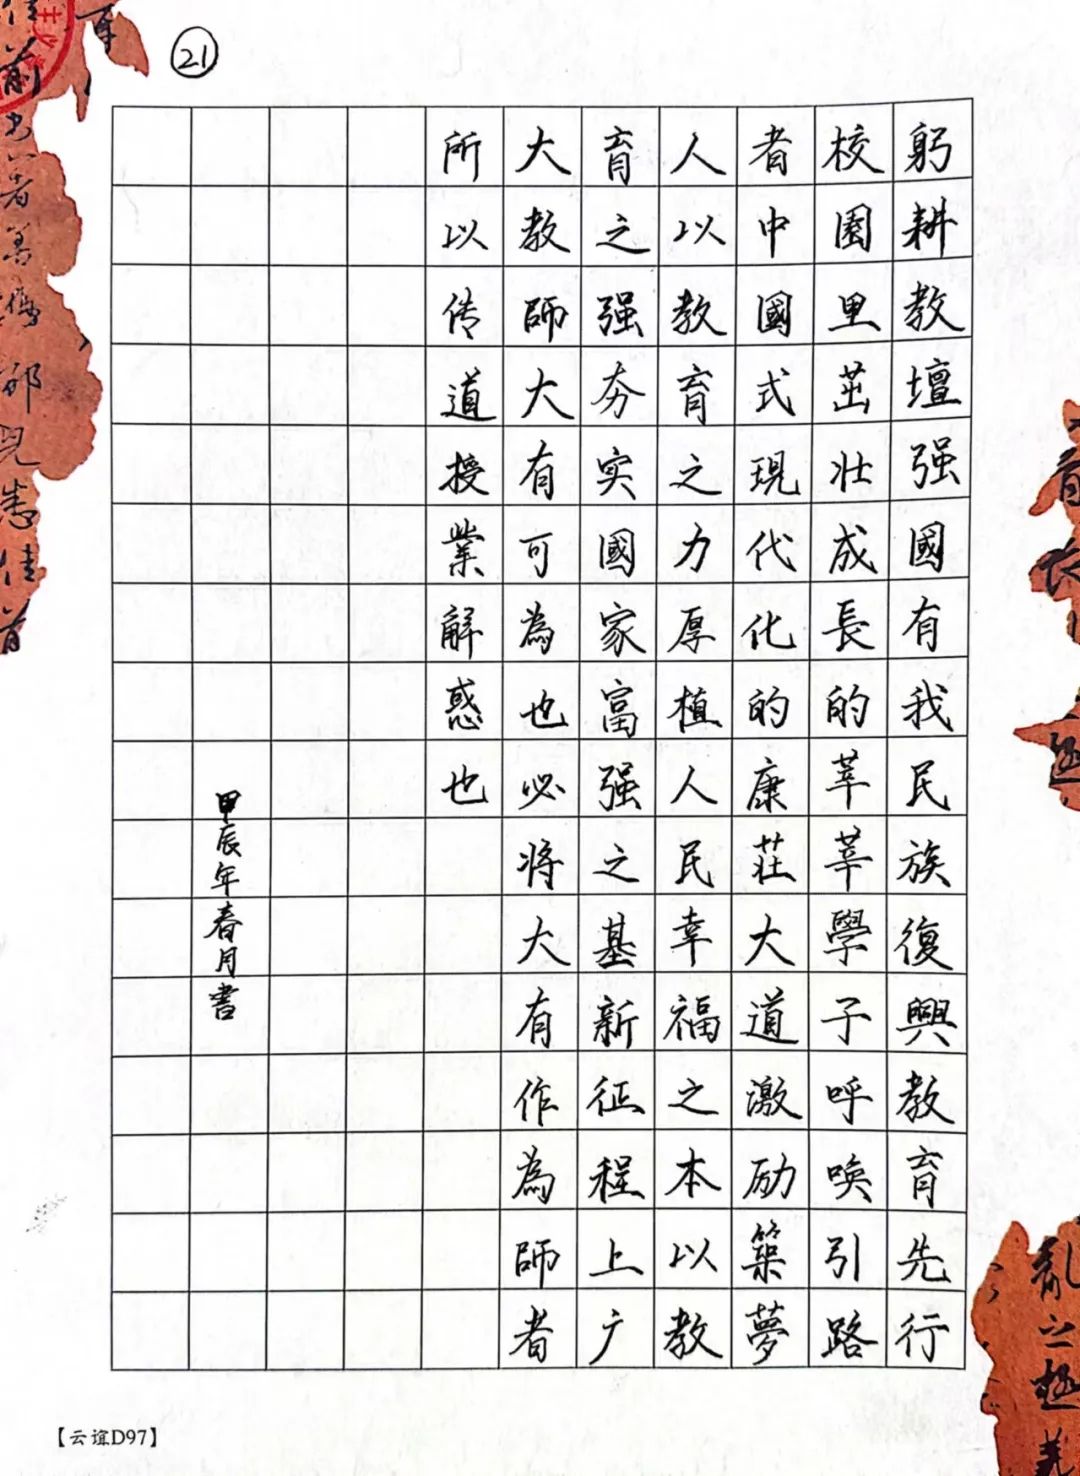 21
躬耕教壇强國有我民族復興教育先行
校園里茁壯成長的莘莘學子呼唤引路
者中國式現代化的康莊大道激励築夢
人以教育之力厚植人民幸福之本以教
育之强夯实國家富强之基新征程上广
大教師大有可為也必将大有作為師者
所以传道授業解惑也
甲辰年春月書
【云谊D97】